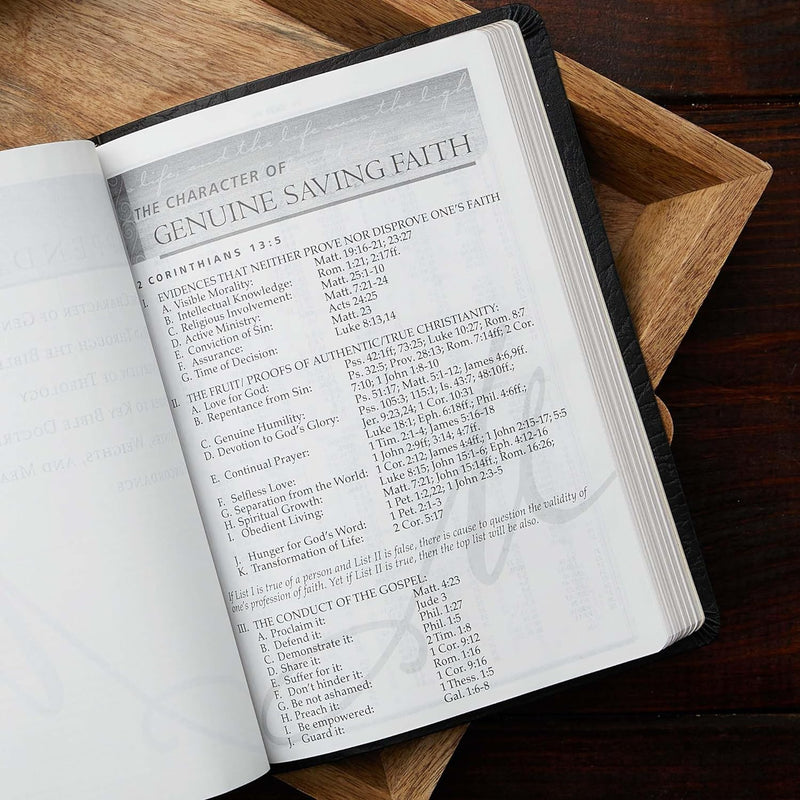 life, and the life was the ligh
THE CHARACTER OF
GENUINE SAVING FAITH
2 CORINTHIANS 13:5
I. EVIDENCES THAT NEITHER PROVE NOR DISPROVE ONE'S FAITH
A. Visible Morality: Matt. 19:16-21; 23:27
B. Intellectual Knowledge: Rom. 1:21; 2:17ff.
C. Religious Involvement: Matt. 25:1-10
D. Active Ministry: Matt. 7:21-24
E. Conviction of Sin: Acts 24:25
F. Assurance: Matt. 23
G. Time of Decision: Luke 8:13,14
II. THE FRUIT/ PROOFS OF AUTHENTIC/TRUE CHRISTIANITY:
A. Love for God: Pss. 42:1ff; 73:25; Luke 10:27; Rom. 8:7
B. Repentance from Sin: Ps. 32:5; Prov. 28:13; Rom. 7:14ff; 2 Cor.
7:10; 1 John 1:8-10
C. Genuine Humility: Ps. 51:17; Matt. 5:1-12; James 4:6,9ff.
D. Devotion to God's Glory: Pss. 105:3; 115:1; Is. 43:7; 48:10ff.;
Jer. 9:23,24; 1 Cor. 10:31
E. Continual Prayer: Luke 18:1; Eph. 6:18ff.; Phil. 4:6ff.;
1 Tim. 2:1-4; James 5:16-18
F. Selfless Love: 1 John 2:9ff; 3:14; 4:7ff.
G. Separation from the World: 1 Cor. 2:12; James 4:4ff.; 1 John 2:15-17; 5:5
H. Spiritual Growth: Luke 8:15; John 15:1-6; Eph. 4:12-16
I. Obedient Living: Matt. 7:21; John 15:14ff.; Rom. 16:26;
1 Pet. 1:2,22; 1 John 2:3-5
J. Hunger for God's Word: 1 Pet. 2:1-3
K. Transformation of Life: 2 Cor. 5:17
If List I is true of a person and List II is false, there is cause to question the validity of
one's profession of faith. Yet if List II is true, then the top list will be also.
III. THE CONDUCT OF THE GOSPEL:
A. Proclaim it: Matt. 4:23
B. Defend it: Jude 3
C. Demonstrate it: Phil. 1:27
D. Share it: Phil. 1:5
E. Suffer for it: 2 Tim. 1:8
F. Don't hinder it: 1 Cor. 9:12
G. Be not ashamed: Rom. 1:16
H. Preach it: 1 Cor. 9:16
I. Be empowered: 1 Thess. 1:5
J. Guard it: Gal. 1:6-8